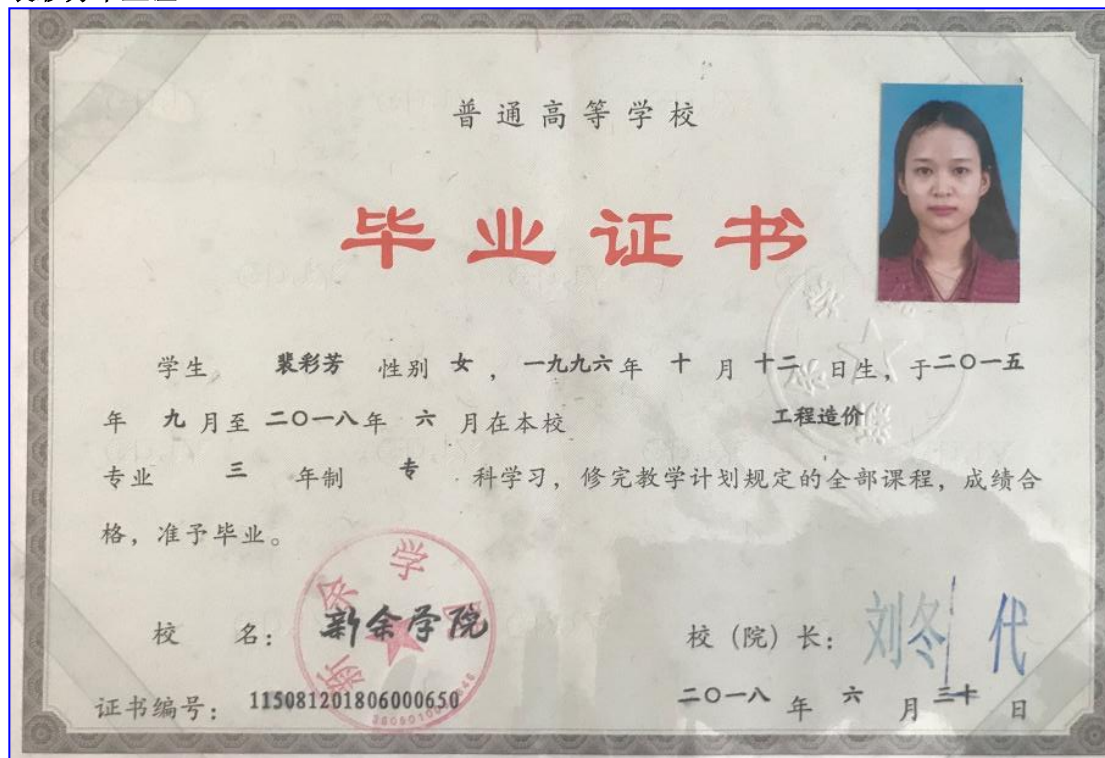 普通高等学校
毕业证书
学生 裴彩芳 性别 女 ，一九九六年 十 月 十二 日生，于二〇一五
年 九 月至 二〇一八年 六 月在本校 工程造价
专业 三 年制 专 科学习，修完教学计划规定的全部课程，成绩合
格，准予毕业。
校 名：新余学院
校（院）长：
证书编号：115081201806000650
二〇一八 年 六 月 三十 日